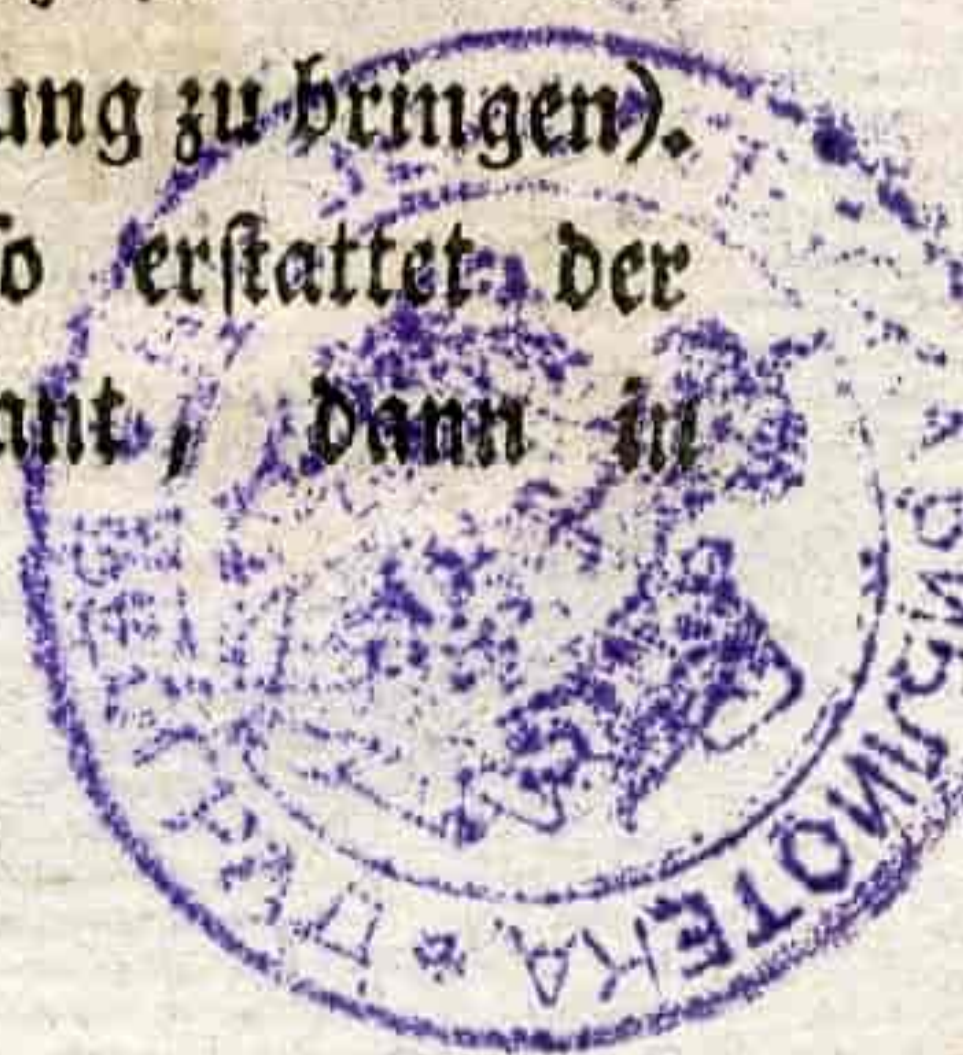 ung zu bringen).
ſo erſtattet der
ant, dann in
БИБЛИОТЕКА